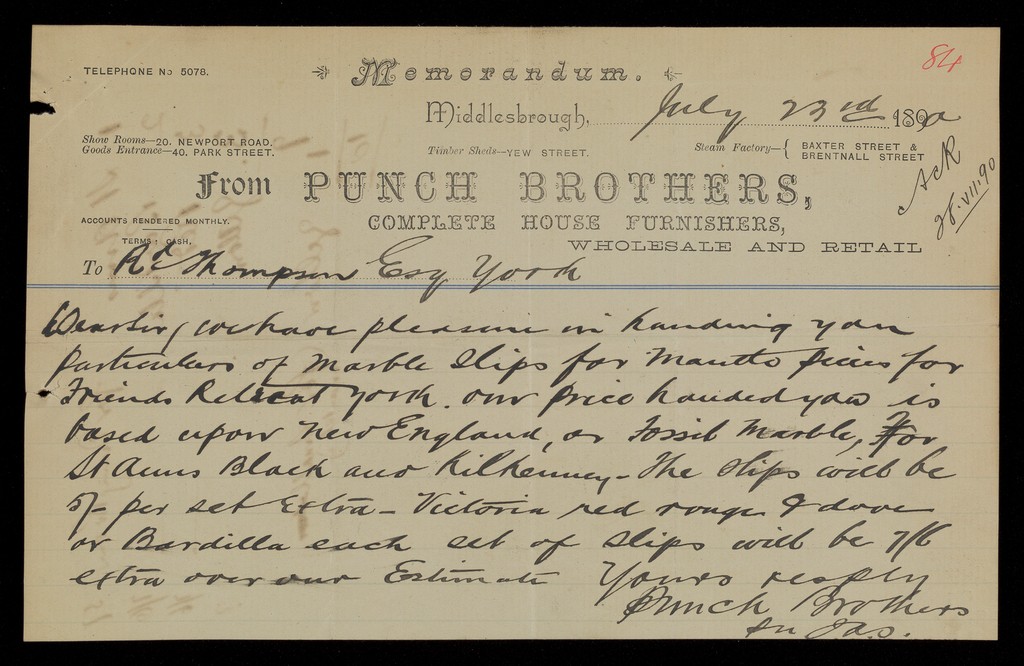 84
TELEPHONE No 5078.
Memorandum.
Middlesbrough, July 23rd 1890
Show Rooms—20. NEWPORT ROAD.
Goods Entrance—40. PARK STREET.
Timber Sheds—YEW STREET.
Steam Factory—{ BAXTER STREET &
BRENTNALL STREET
Ack
28.VII.90
From PUNCH BROTHERS,
ACCOUNTS RENDERED MONTHLY.
COMPLETE HOUSE FURNISHERS,
TERMS: CASH.
WHOLESALE AND RETAIL
To Rd Thompson Esq York
Dear Sir, we have pleasure in handing you
particulars of Marble Slips for Mantle pieces for
Friends Retreat York. our price handed you is
based upon New England, or Fossil Marble, For
St Anns Black and Kilkenney - The slips will be
5/- per set Extra - Victoria red rouge & dove
or Bardilla each set of slips will be 7/6
extra over our Estimate Yours resply
Punch Brothers